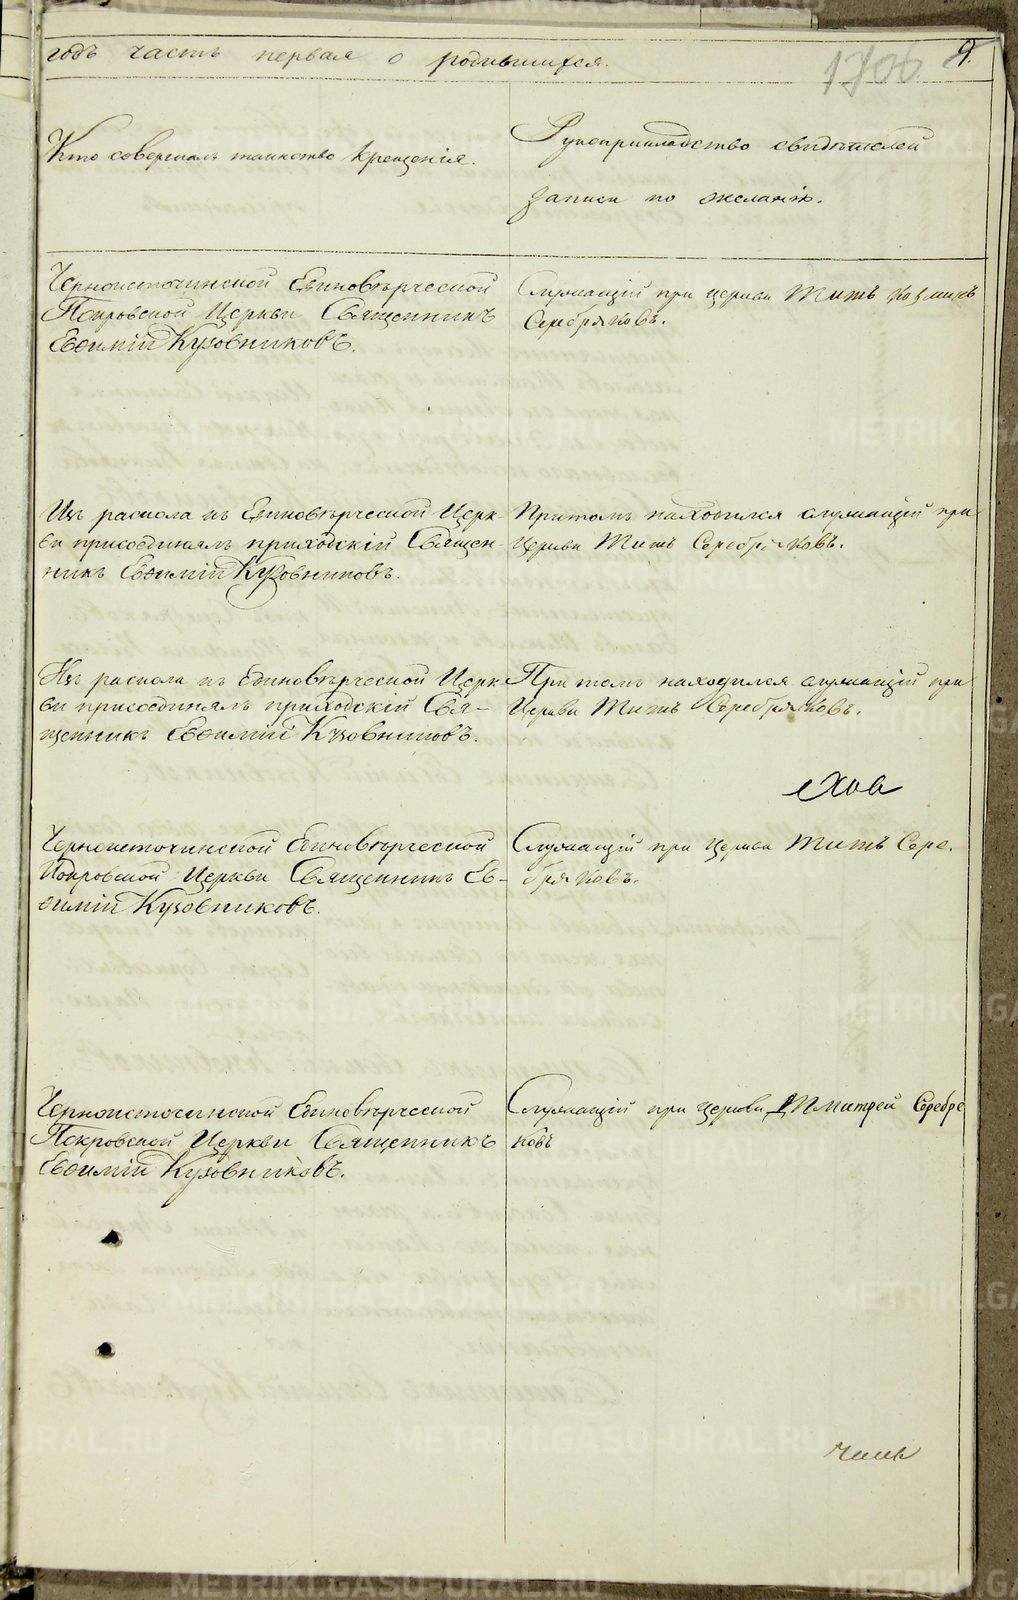 годъ часть первая о родившихся.
1806 9.
Кто совершалъ таинство крещенія.
Рукоприкладство свидѣтелей
записи по желанію.
Черноисточинской Единовѣрческой
Покровской Церкви Священникъ
Евѳимій Кузовниковъ.
Служащій при церкви Титъ Козмичъ
Серебряковъ.
Изъ раскола къ Единовѣрческой Церк-
ви присоединялъ приходскій Священ-
никъ Евѳимій Кузовниковъ.
Притомъ находился служащій при
Церкви Титъ Серебряковъ.
Изъ раскола къ Единовѣрческой Церк-
ви присоединялъ приходскій Свя-
щенникъ Евѳимій Кузовниковъ.
При томъ находился служащій при
Церкви Титъ Серебряковъ.
Черноисточинской Единовѣрческой
Покровской Церкви Священникъ Ев-
ѳимій Кузовниковъ.
Служащій при церкви Титъ Сере-
бряковъ.
Черноисточинской Единовѣрческой
Покровской Церкви Священникъ
Евѳимій Кузовниковъ.
Служащій при церкви Дмитрей Серебря
ковъ
METRIKI.GASO-URAL.RU